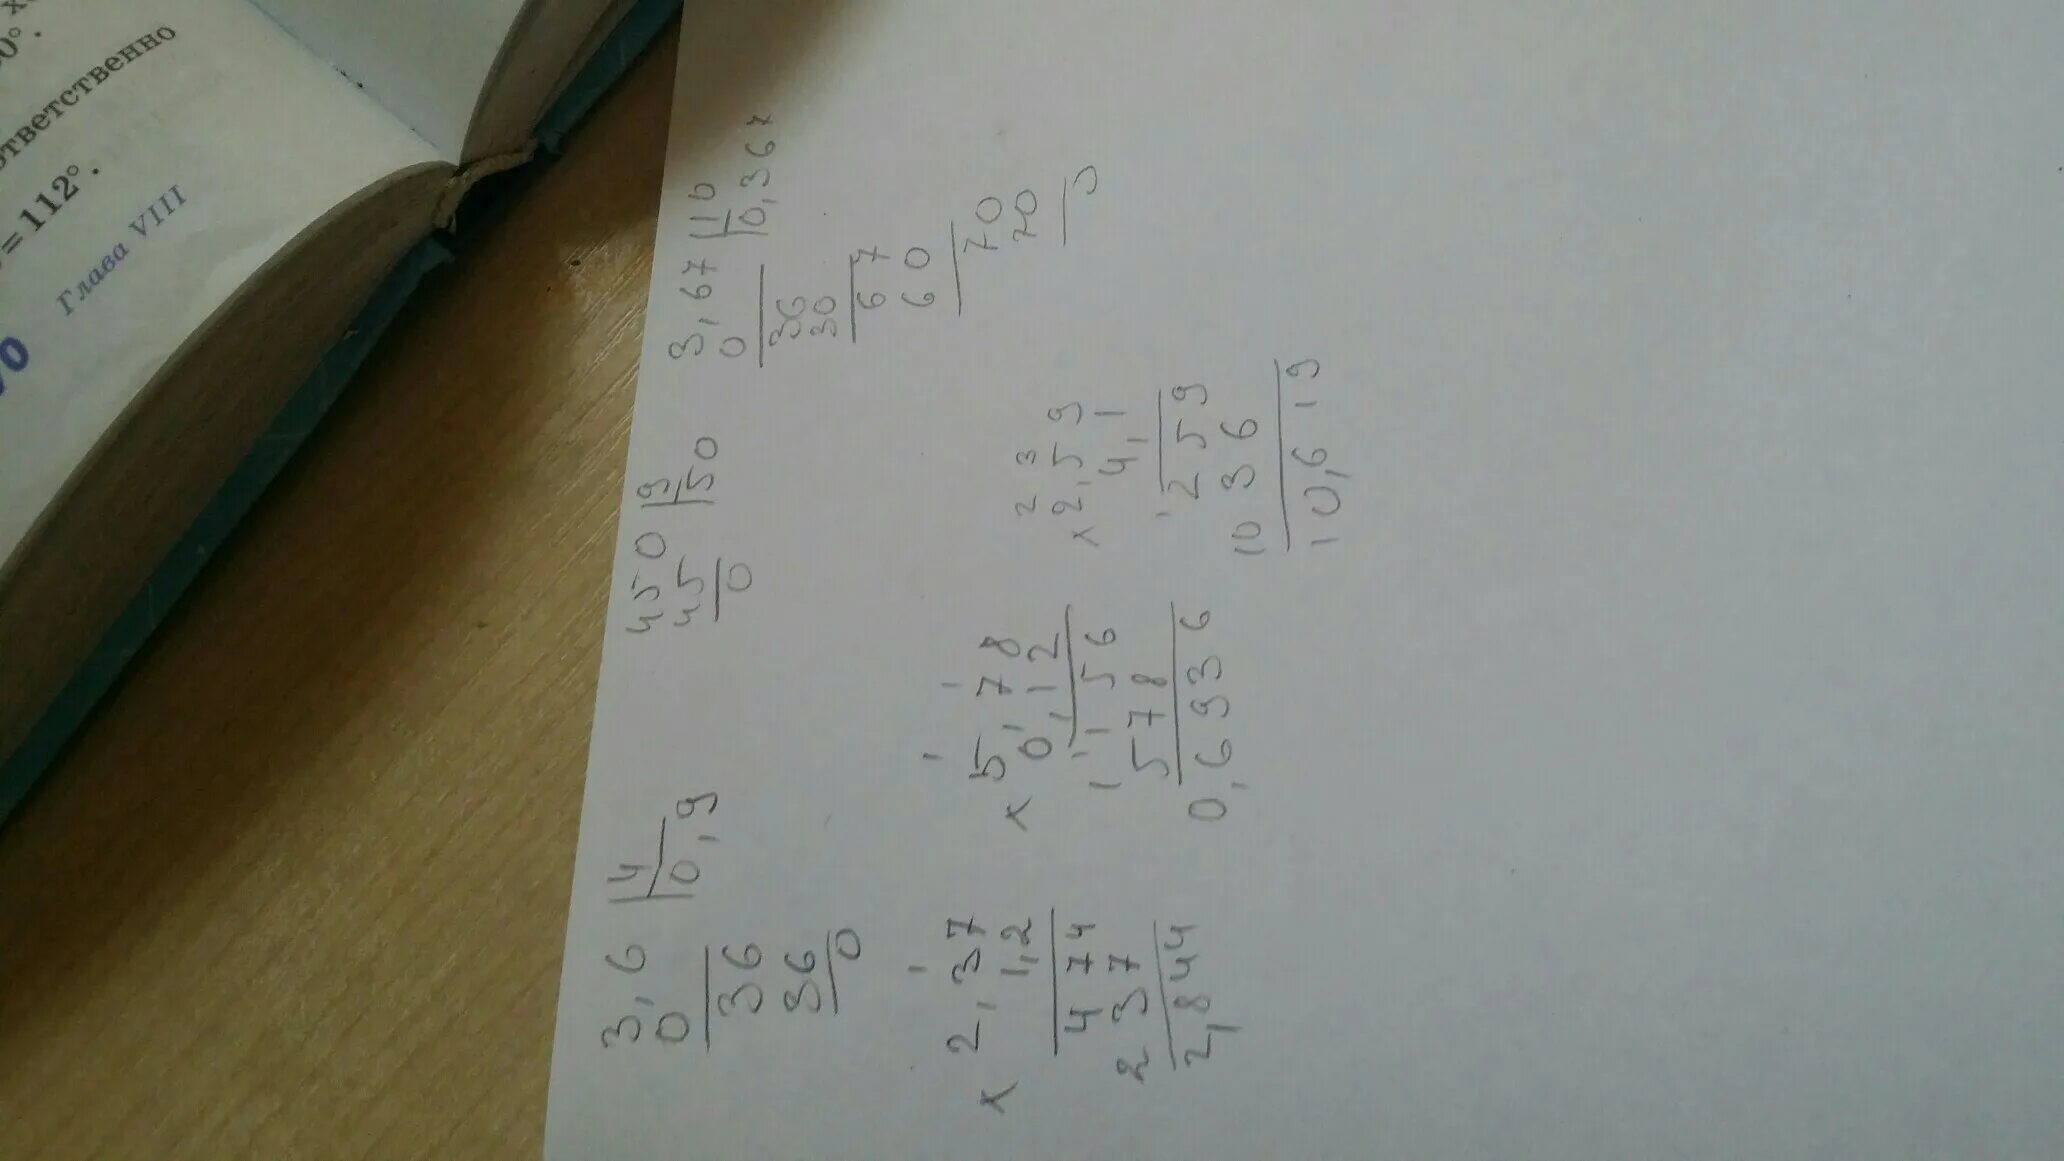 0°.
ответственно
= 112°.
Глава VIII
3,6 | 4
0 | 0,9
36
36
0
450 | 9
45 | 50
0
3,67 | 10
0 | 0,367
36
30
67
60
70
70
0
1
× 2,37
1,2
474
237
2,844
1 1
× 5,78
0,12
1156
578
0,6936
2 3
× 2,59
4,1
259
1036
10,619